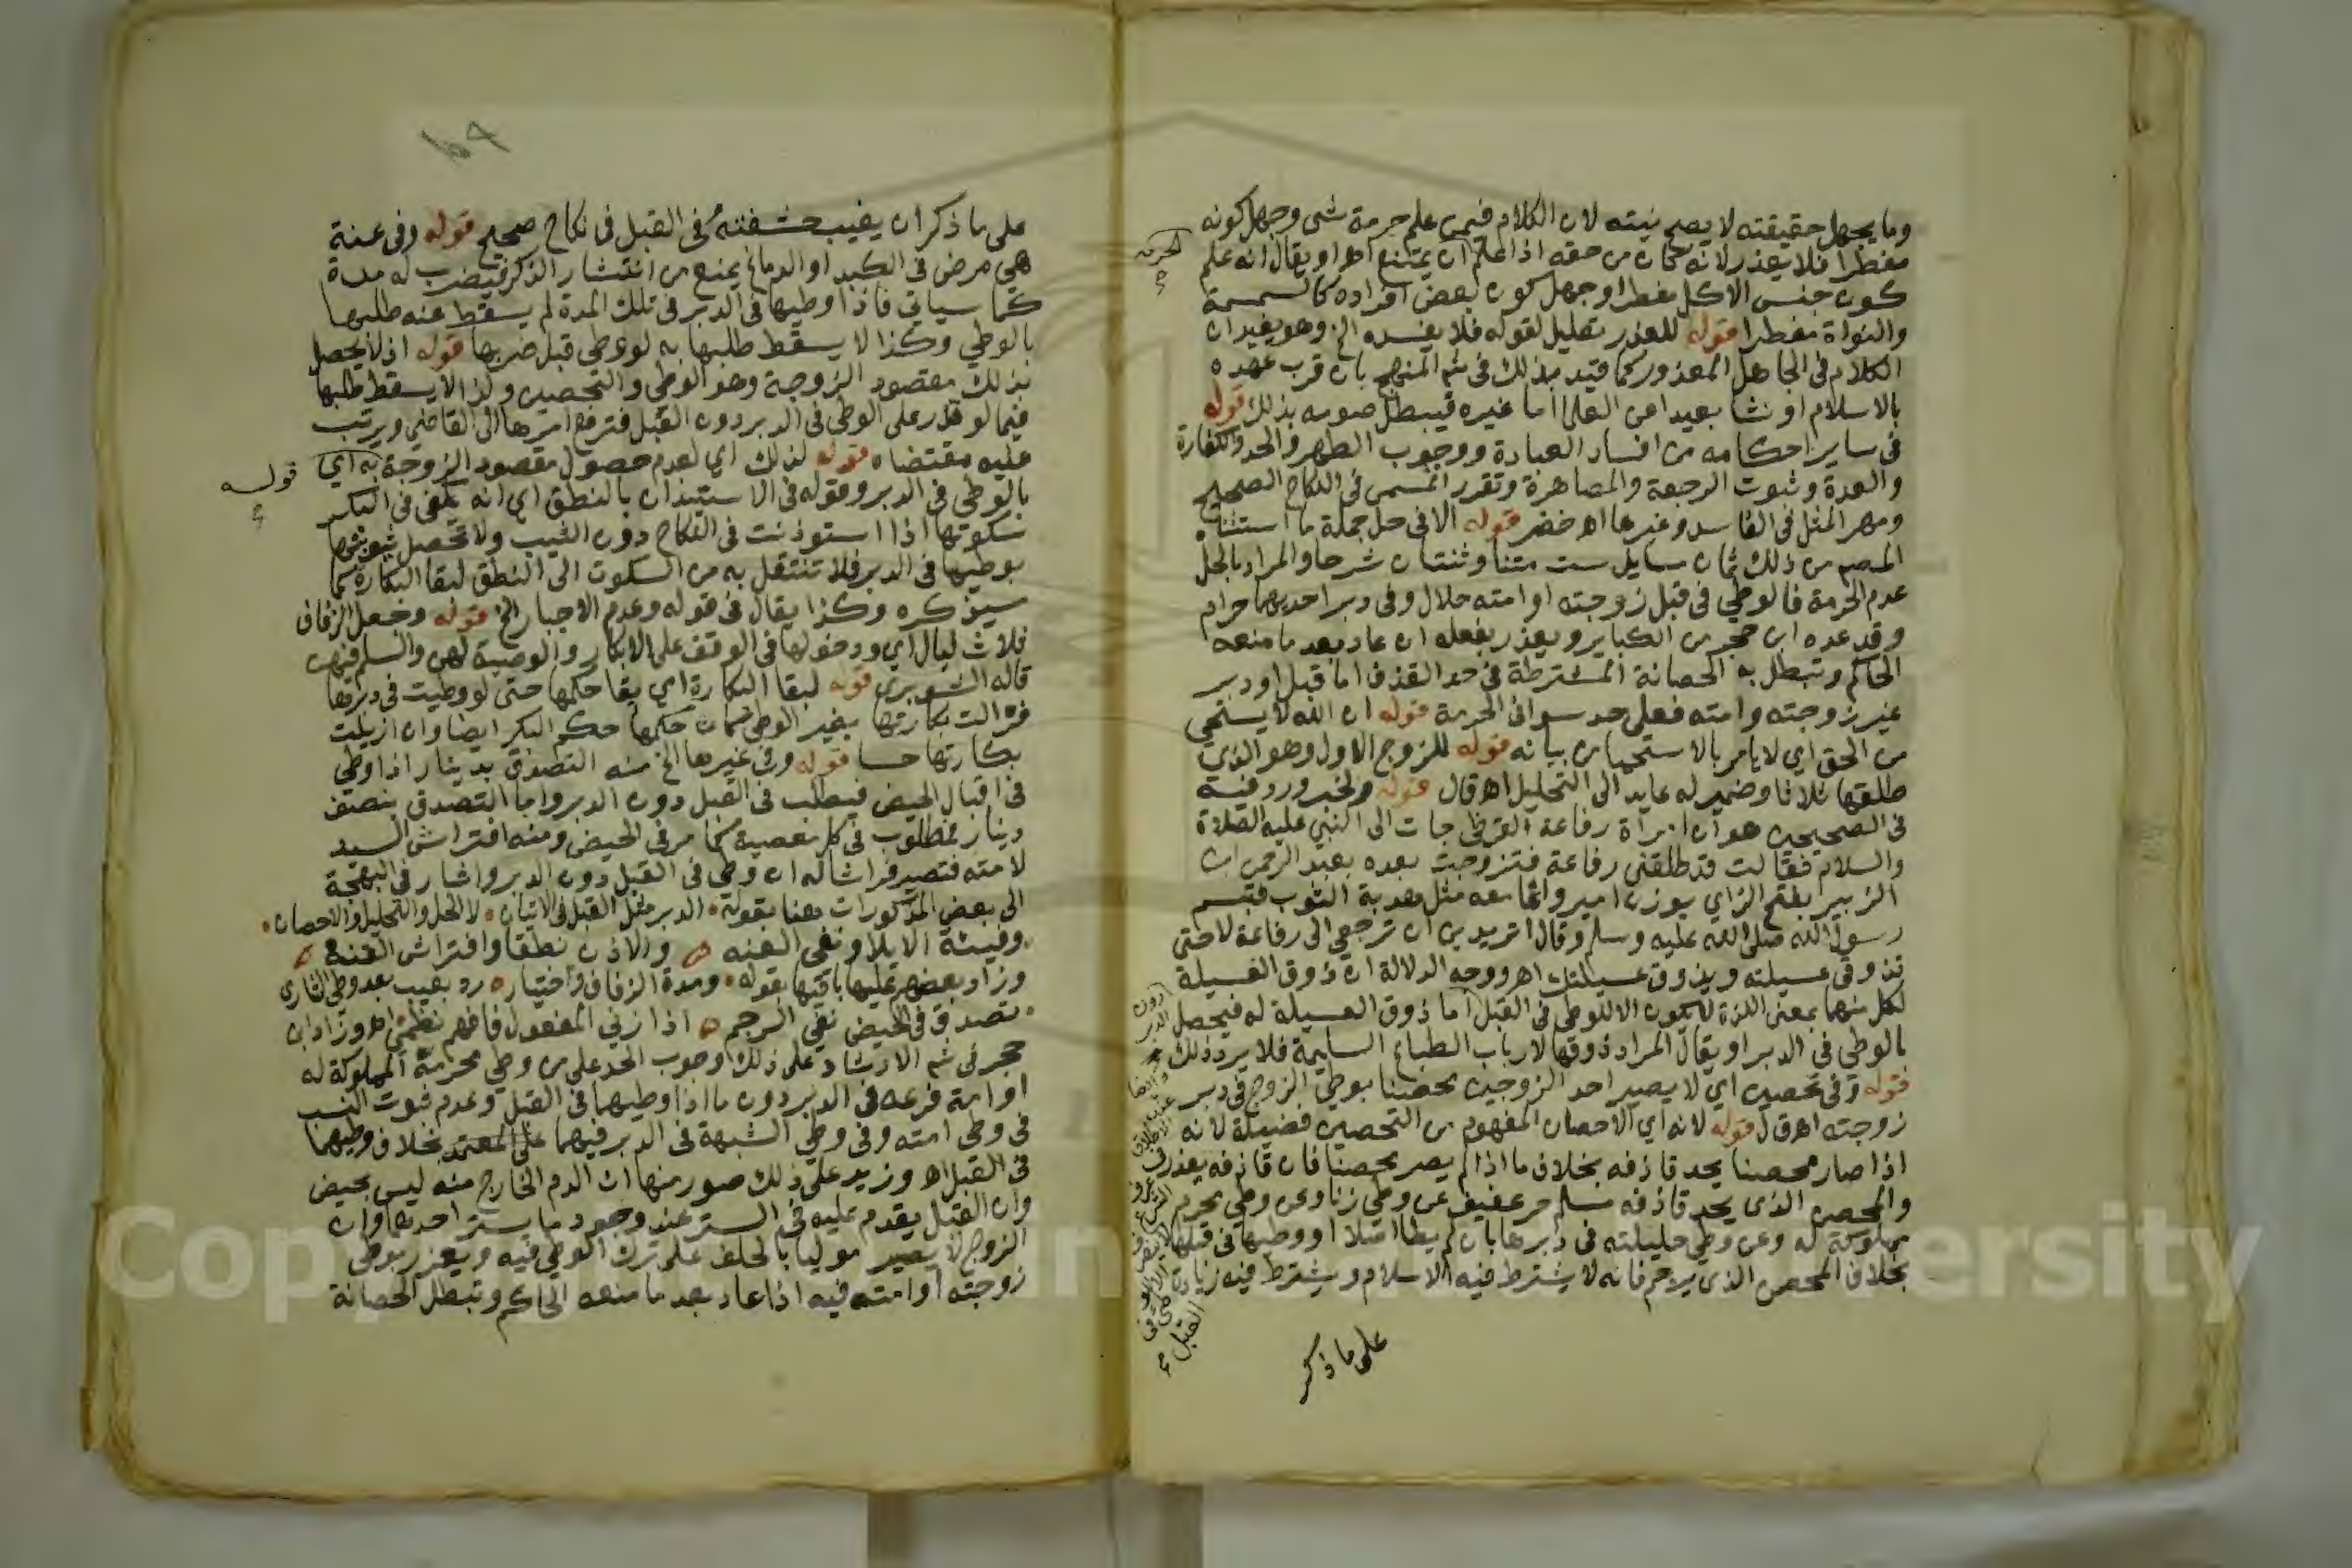 وما يجهل حقيقته لا يصح نيته لان الكلام فيمن علم حرمة شى وجهل كونه
مفطرا فلا يعذر لانه كان من حقه اذا علم ان يمتنع اهـ او يقال انه علم
الحرمه
كون جنس الاكل مفطرا وجهل كون بعض افراده كالسمسمة
والنواة مفطرا قوله للعذر تعليل لقوله فلا يفسده الخ وهو يفيد ان
الكلام فى الجاهل المعذور كما قيد بذلك فى شم المنهج بان قرب عهده
بالاسلام او نشا بعيدا عن العلما اما غيره فيبطل صومه بذلك قوله
فى ساير احكامه من افساد العبادة ووجوب الطهر والحد والكفارة
والعدة وثبوت الرجعة والمصاهرة وتقرر المسمى فى النكاح الصحيح
ومهر المثل فى الفاسد وغيرها اهـ خضر قوله الا فى حل جملة ما استثناه
المص من ذلك ثمان مسايل ست متنا وثنتان شرحا والمراد بالحل
عدم الحرمة فالوطي فى قبل زوجته او امته حلال وفى دبر احديهما حرام
وقد عده ابن حجر من الكباير ويعذر بفعله ان عاد بعد ما منعه
الحاكم وتبطل به الحصانة المشترطة فى حد القذف اما قبل او دبر
غير زوجته وامته فعلى حد سوا فى الحرمة قوله ان الله لا يستحي
من الحق اي لا يامر بالاستحيا من بيانه قوله للزوج الاول وهو الذى
طلقها ثلاثا وضمير له عايد الى التحليل اهـ ق ل قوله ولخبر ورد فيه
فى الصحيحين هو ان امراة رفاعة القرظي جات الى النبي عليه الصلاة
والسلام فقالت قد طلقنى رفاعة فتزوجت بعده بعبد الرحمن ابن
الزبير بفتح الزاي بوزن امير وانما معه مثل هدبة الثوب فتبسم
رسول الله صلى الله عليه وسلم وقال اتريدين ان ترجعي الى رفاعة لا حتى
تذوقى عسيلته ويذوق عسيلتك اهـ ووجه الدلالة ان ذوق العسيلة
لكل منهما بمعنى اللذة لا يكون الا للوطي فى القبل اما ذوق العسيلة له فيحصل
بالوطي فى الدبر او يقال المراد ذوقها لارباب الطباع السليمة فلا يرد ذلك
قوله وفى تحصين اي لا يصير احد الزوجين محصنا بوطي الزوج فى دبر
زوجته اهـ ق ل قوله لانه اي الاحصان المفهوم من التحصين فضيلة لانه
اذا صار محصنا يحد قاذفه بخلاف ما اذا لم يصر محصنا فان قاذفه يعذر
والمحصن الذى يحد قاذفه مسلم حر عفيف عن وطي زنا وعن وطي محرم
مملوكة له وعن وطي حليلته فى دبرها بان لم يطا اصلا او وطيها فى قبلها
بخلاف المحصن الذى يرجم فانه لا يشترط فيه الاسلام ويشترط فيه زيادة
دون الدبر
القبل
على ما ذكر
على ما ذكر ان يغيب حشفته فى القبل فى نكاح صحيح قوله وفى عنة
هي مرض فى الكبد او الدماغ يمنع من انتشار الذكر فيضرب له مدة
كما سياتى فاذا وطيها فى الدبر فى تلك المدة لم يسقط عنه طلبها
بالوطي وكذا لا يسقط طلبها به لو وطي قبل ضربها قوله اذ لا يحصل
بذلك مقصود الزوجة وهو الوطي والتحصين ولذا لا يسقط طلبها
فيما لو قدر على الوطي فى الدبر دون القبل فترفع امرها الى القاضي ويرتب
عليه مقتضاه قوله لذلك اي لعدم حصول مقصود الزوجة به اي
قوله
بالوطي فى الدبر وقوله فى الاستيذان بالنطق اي انه يكفى فى البكر
سكوتها اذا استوذنت فى النكاح دون الثيب ولا تحصل ثيوبتها
بوطيها فى الدبر فلا تنتقل به من السكوت الى النطق لبقا البكارة كما
سيذكره وكذا يقال فى قوله وعدم الاجبار الخ قوله وجعل الزفاف
ثلاث ليال اي ودخولها فى الوقف على الابكار والوصية لهن والسلم فيهن
قاله الشوبرى قوله لبقا البكارة اي بقا حكمها حتى لو وطيت فى دبرها
فزالت بكارتها بغير الوطي كان حكمها حكم البكر ايضا وان ازيلت
بكارتها حسا قوله وفى غيرها الخ منه التصدق بدينار اذا وطي
فى اقبال الحيض فيطلب فى القبل دون الدبر واما التصدق بنصف
دينار فمطلوب فى كل معصية كما مر فى الحيض ومنه افتراش السيد
لامته فتصير فراشا له ان وطي فى القبل دون الدبر واشار فى البهجة
الى بعض المذكورات هنا بقوله الدبر مثل القبل فى الاتيان لا الحل والتحليل والاحصان
وفيئة الايلا ونفى العنه والاذن نطقا وافتراش القنه
وزاد بعضهم عليها باقيها بقوله ومدة الزفاف واختيار رد بعيب بعد وطي الشاري
تصدق فى الحيض نفي الرجم اذا زني المفعول فافهم نظمى اهـ وزاد ابن
حجر فى شم الارشاد على ذلك وجوب الحد على من وطي محرمه المملوكة له
او امة فرعه فى الدبر دون ما اذا وطيهما فى القبل وعدم ثبوت النسب
فى وطي امته وفى وطي الشبهة فى الدبر فيهما على المعتمد بخلاف وطيهما
فى القبل اهـ وزيد على ذلك صور منها ان الدم الخارج منه ليس بحيض
وان القبل يقدم عليه فى الستر عند وجود ما يستر احديهما وان
الزوج لا يصير موليا بالحلف على ترك الوطي فيه ويعزر بوطي
زوجته او امته فيه اذا عاد بعد ما منعه الحاكم وتبطل الحصانة